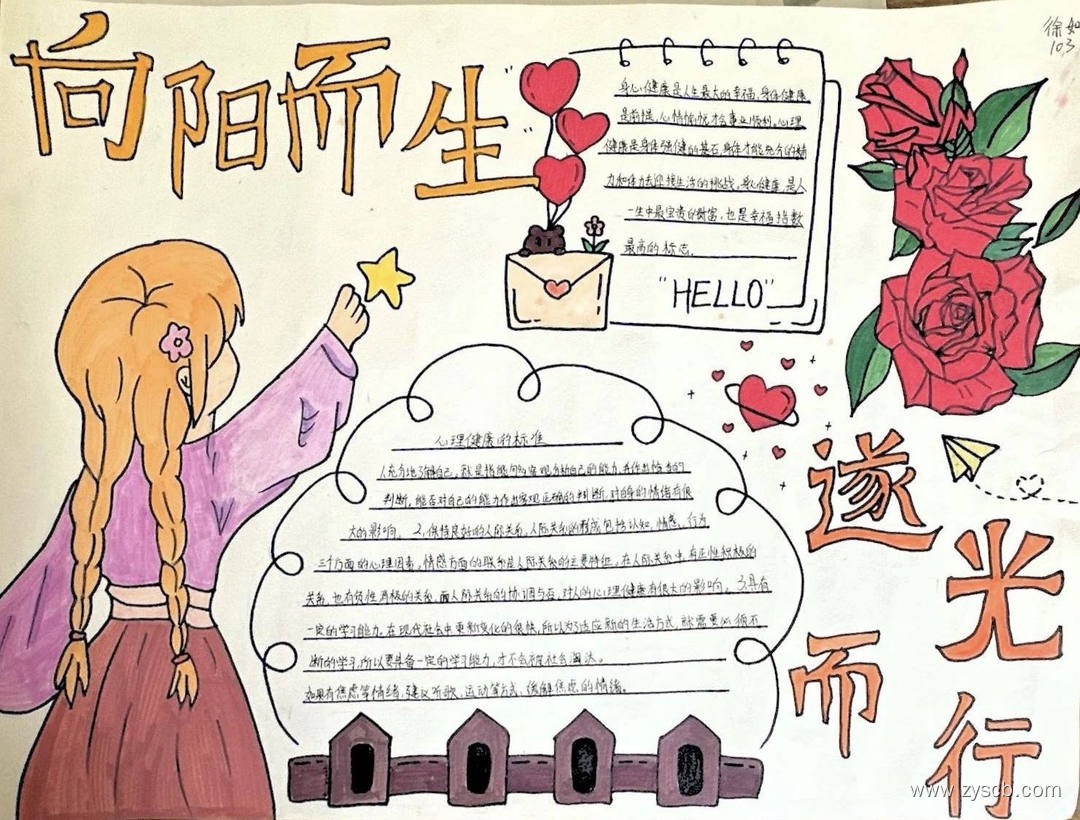 向阳而生
徐如
103
身心健康是人生最大的幸福,身体健康
是前提,心情愉悦才会事业顺利。心理
健康是身体强健的基石,身体才能充分的精
力和体力去迎接生活的挑战,身心健康,是人
一生中最宝贵的财富,也是幸福指数
最高的标志。
"HELLO"
心理健康的标准
1.充分地了解自己,就是指能够客观分析自己的能力,并作出恰当的
判断,能否对自己的能力作出客观正确的判断,对自身的情绪有很
大的影响。 2.保持良好的人际关系,人际关系的构成包括认知、情感、行为
三个方面的心理因素,情感方面的联系是人际关系的主要特征,在人际关系中,有正性积极的
关系,也有负性消极的关系,而人际关系的协调与否,对人的心理健康有很大的影响。 3.具有
一定的学习能力,在现代社会中更新变化的很快,所以为了适应新的生活方式,就需要必须不
断的学习,所以要具备一定的学习能力,才不会被社会淘汰。
如果有焦虑等情绪,建议听歌、运动等方式,缓解焦虑的情绪。
遂光而行
www.zyscb.com